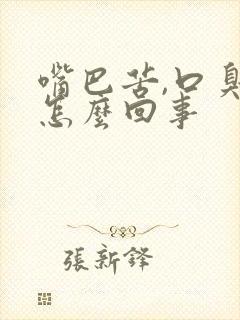 嘴巴苦,口臭
怎麼回事
張新鋒